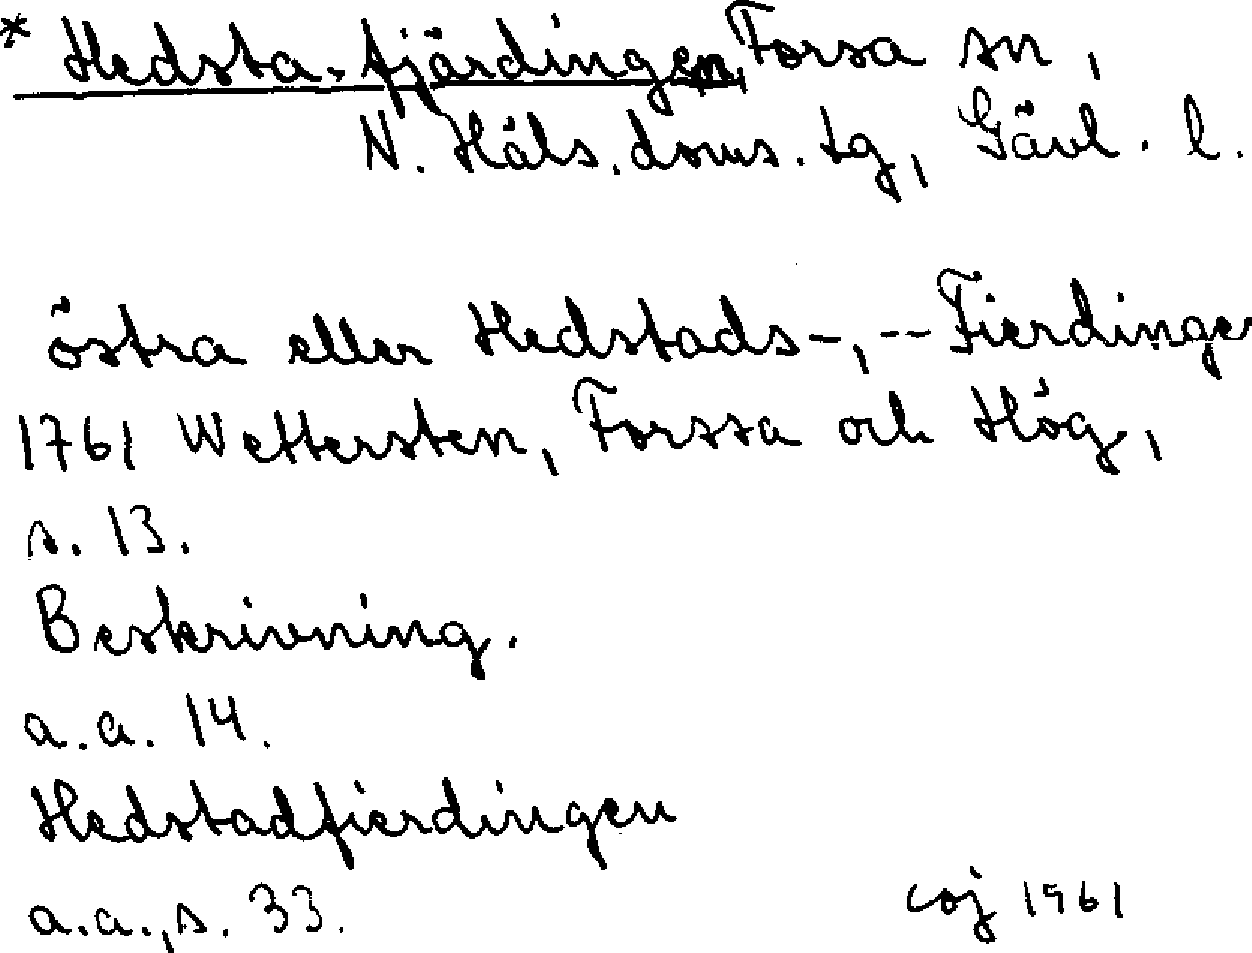 * Hedsta-fjärdingen, Forsa sn,
N. Häls. doms. tg, Gävl. l.
östra eller Hedstads-, -- Fierdingen
1761 Wettersten, Forssa och Hög,
s. 13.
Beskrivning.
a.a. 14.
Hedstadfierdingen
a.a., s. 33.
coj 1961